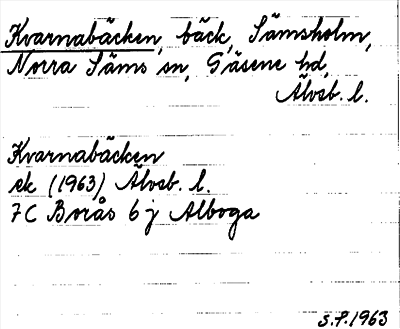 Kvarnabäcken, bäck, Sämsholm,
Norra Säms sn, Gäsene hd,
Älvsb. l.
Kvarnabäcken
ek (1963) Älvsb. l.
7C Borås 6 j Alboga
S.P. 1963